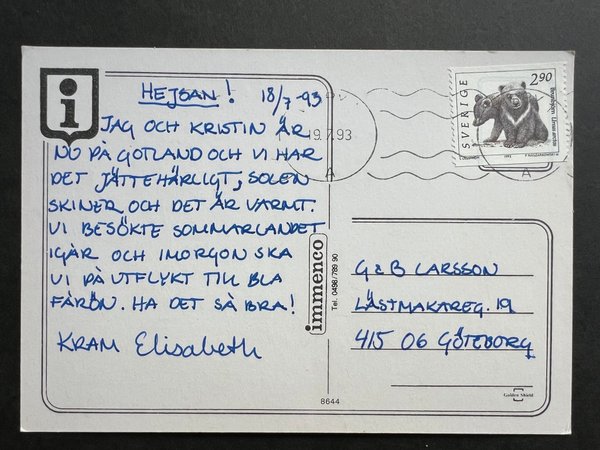 i
HEJSAN! 18/7-93
JAG OCH KRISTIN ÄR
NU PÅ GOTLAND OCH VI HAR
DET JÄTTEHÄRLIGT, SOLEN
SKINER OCH DET ÄR VARMT.
VI BESÖKTE SOMMARLANDET
IGÅR OCH IMORGON SKA
VI PÅ UTFLYKT TILL BLA
FÅRÖN. HA DET SÅ BRA!
KRAM Elisabeth
8644
immenco
Tel. 0498/789 90
19.7.93
A
A
SVERIGE
2.90
G & B LARSSON
LÄSTMAKAREG. 19
415 06 GÖTEBORG
Golden Shield